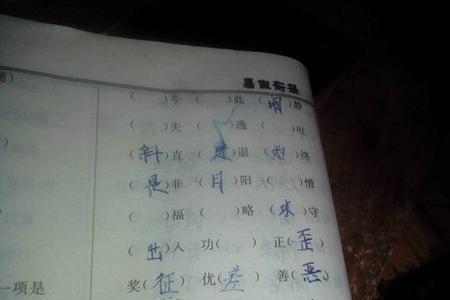 ( )今 ( )此 (闹)静
( )失 ( )逸 ( )吐
(斜)直 (进)退 ( )终
(是)非 (月)阳 ( )憎
( )福 ( )略 ( )守
(出)入 功( ) 正(歪)
奖(惩) 优(差) 善(恶)
一项是